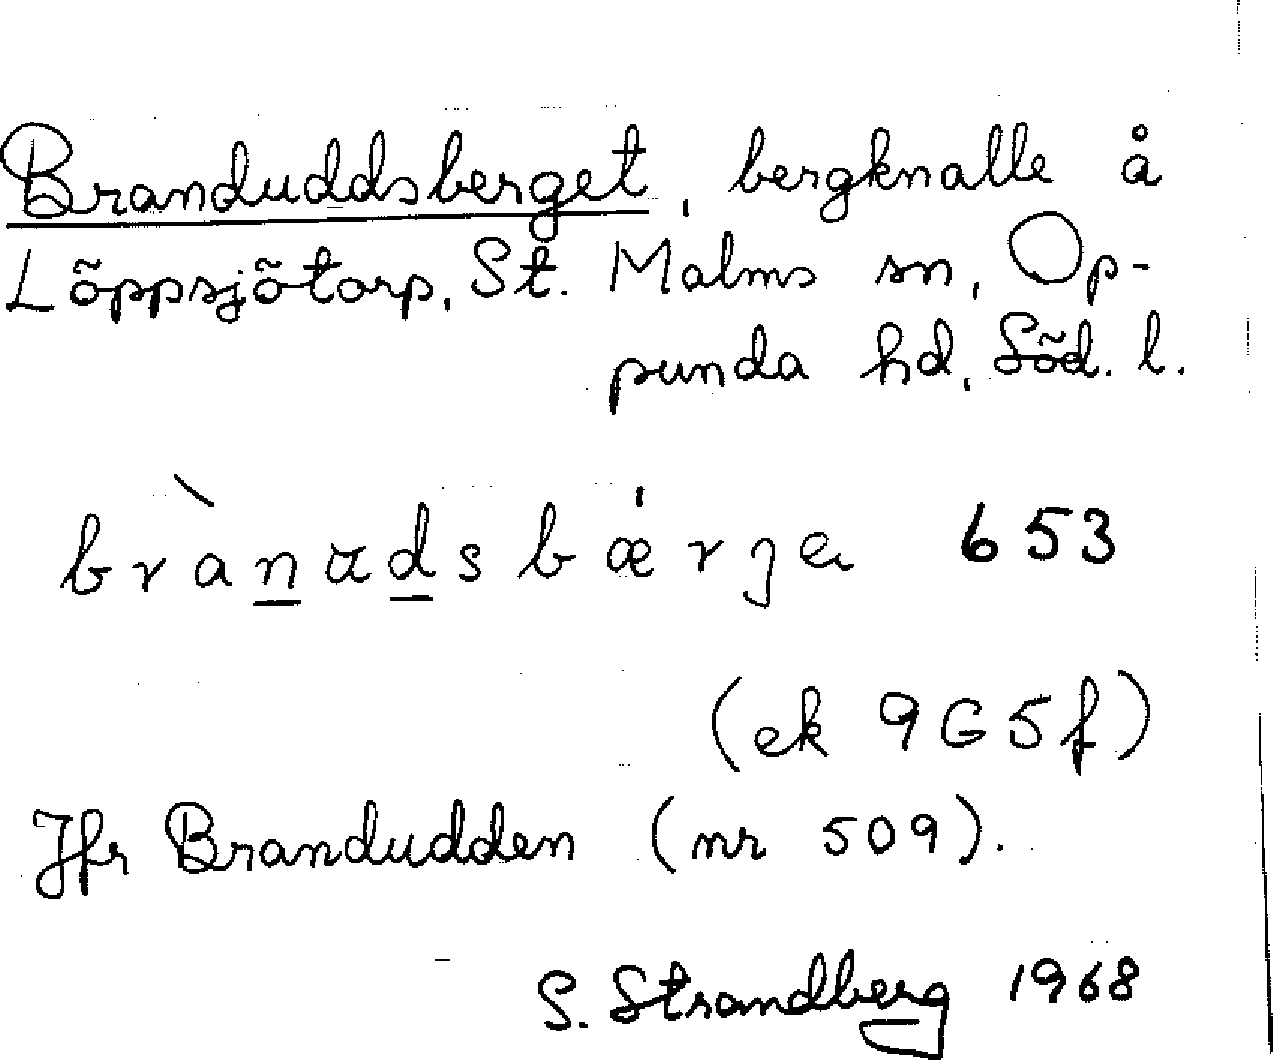 Branduddsberget, bergknalle å
Löppsjötorp, St. Malms sn, Op-
punda hd, Söd. l.
brànadsbærge 653
(ek 9G5f)
Jfr Brandudden (nr 509).
S. Strandberg 1968